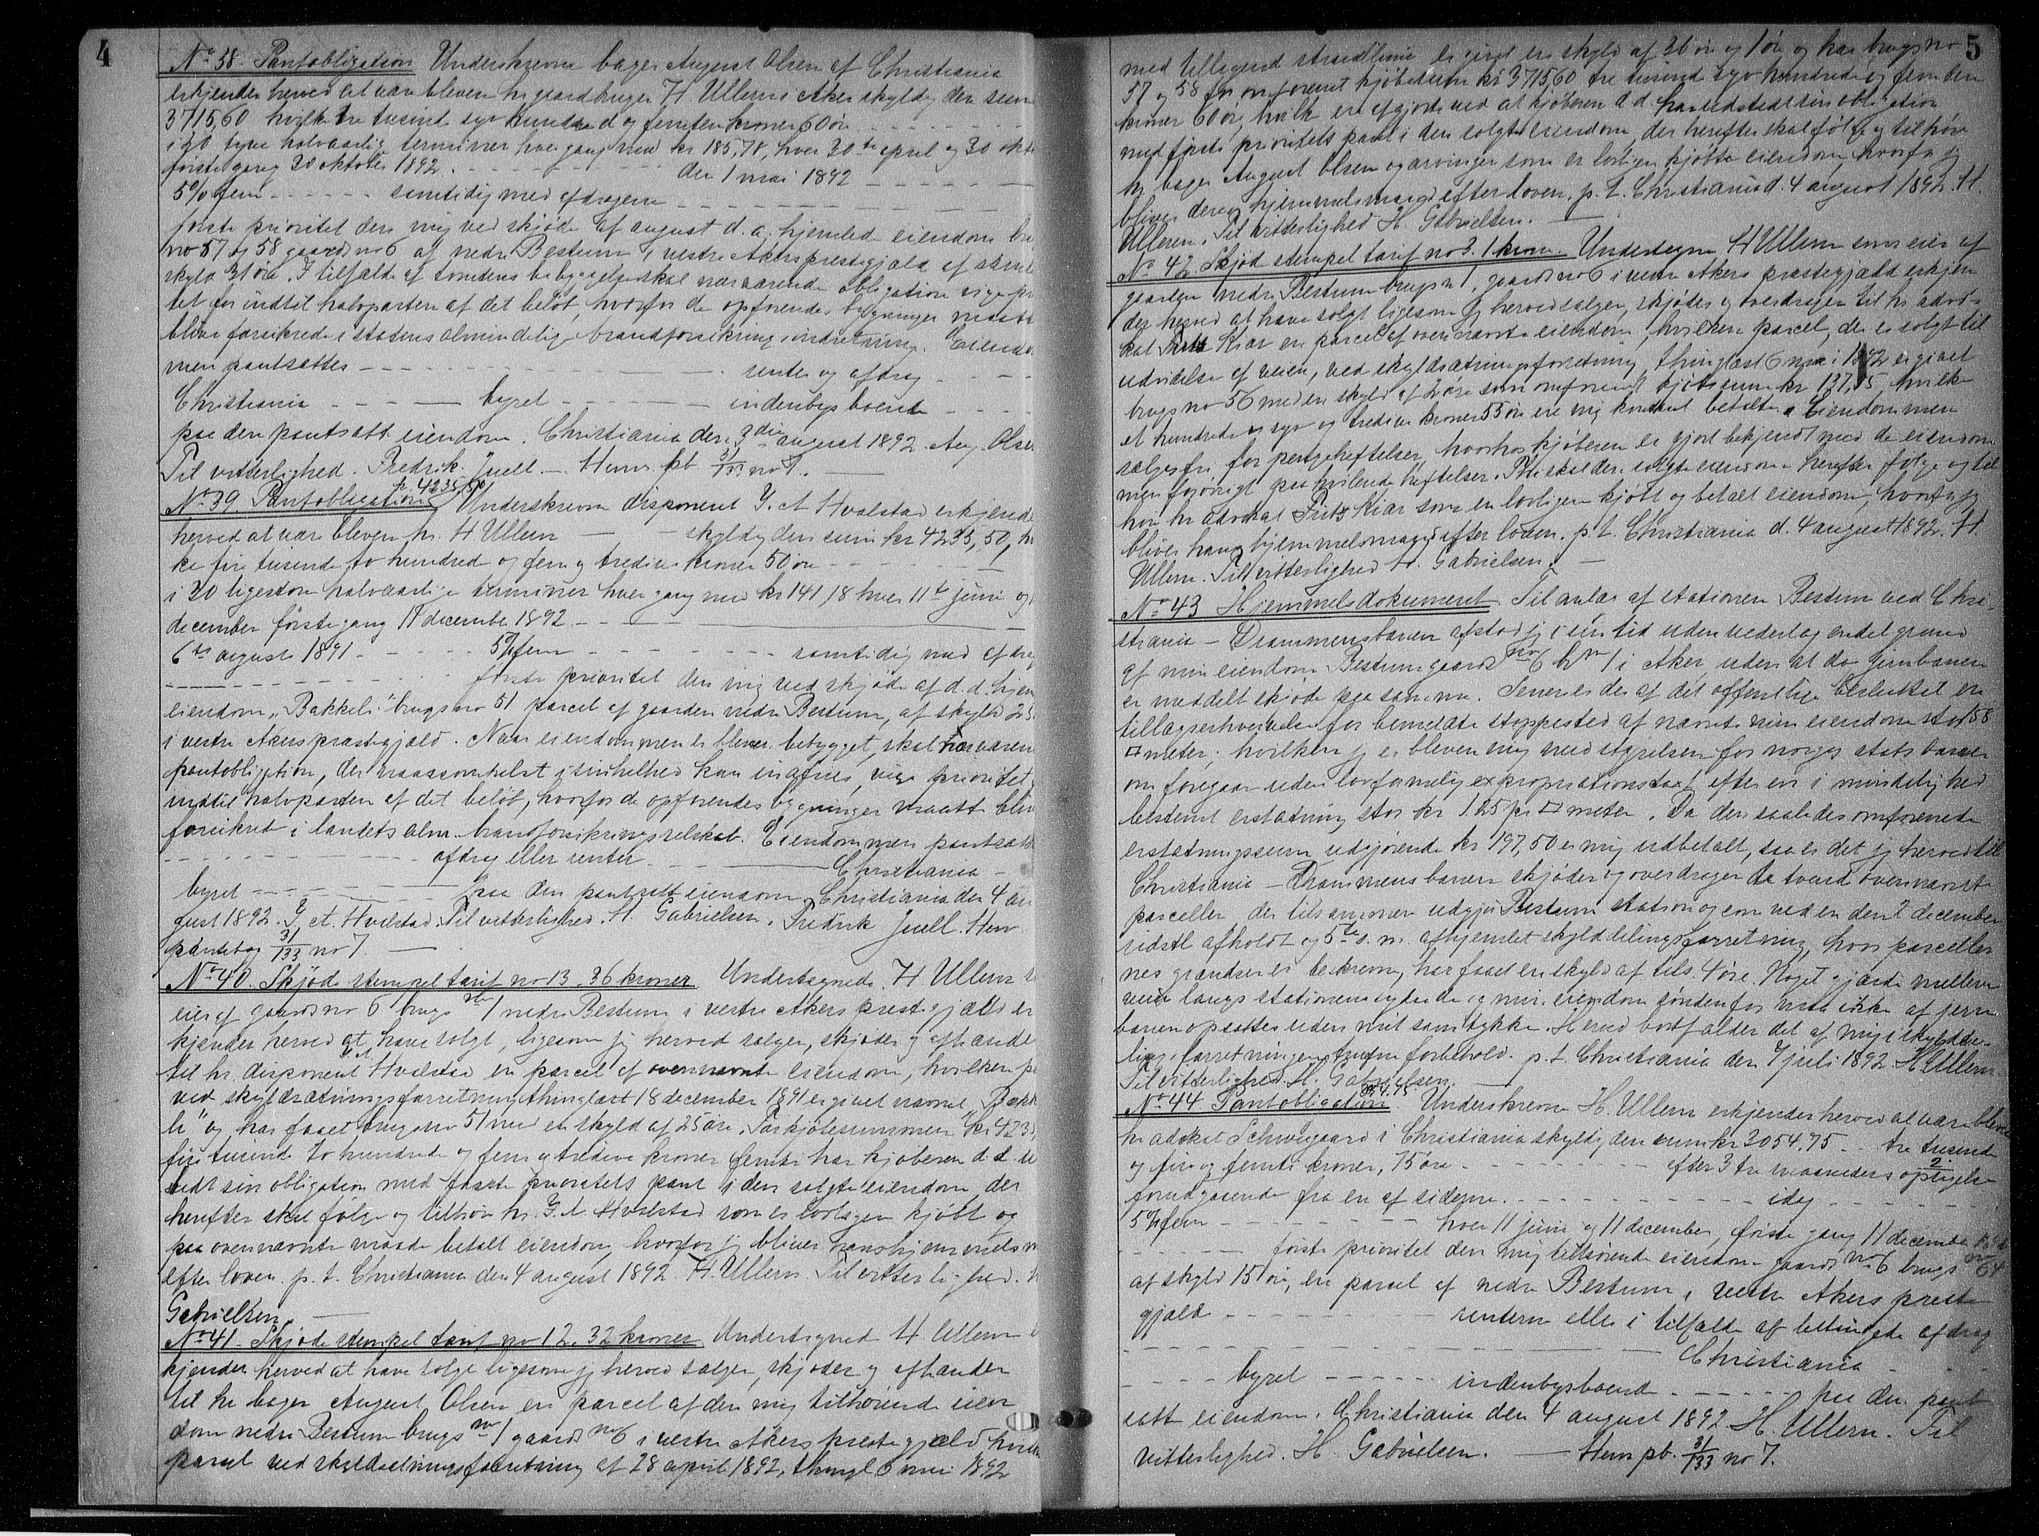 4
No 38. Pantobligation Underskrevne bager August Olsen af Christiania
erkjender herved at være bleven hr gaardbruger H. Ullern i Aker skyldig den sum
3715,60 hvilke tre tusind syv hundrede og femten kroner 60 øre
i 20 tyve halvaarlig terminer hver gang med kr 185,78, hver 30te april og 30 okto
første gang 30 oktober 1892. den 1 mai 1892
5% fem samtidig med afdragene
første prioritet den mig ved skjøde af august d. a. hjemlede eiendom bru
no 57 og 58 gaards no 6 af nedre Bestum i vestre Akers prestegjæld af samlet
skyld 31 øre. I tilfælde af tomtens bebyggelse skal nærværende obligation vige pri
tet for indtil halvparten af det beløb, hvorfor de opførendes bygninger maatte
blive forsikrede i statens almindelige brandforsikringsindretning. Eiendom
men pantsættes renter og afdrag
Christiania byret indenbys boende
paa den pantsatte eiendom. Christiania den 3die august 1892. Aug. Olsen
Til vitterlighed. Fredrik Juell. — Henv. pb. 31/133 no 7.
No 39 Pantobligation kr. 4235,50 Underskrevne disponent G. A Hvalstad erkjender
herved at være bleven hr. H Ullern skyldig den sum kr 4235,50, hvil
ke fire tusinde to hundrede og fem og tredive kroner 50 øre
i 30 ligestore halvaarlige terminer hver gang med kr 141,18 hver 11te juni og
december første gang 11 december 1892
6te august 1891 5% fem samtidig med afdrag
første prioritet den mig ved skjøde af d. d. hjem
eiendom „Bakkeli" brugs no 51 parcel af gaarden nedre Bestum, af skyld 25
i vestre Akers præstegjæld. Naar eiendommen bliver bebygget, skal nærværen
pantobligation, der naarsomhelst i sin helhed kan indfries, vige prioritet
indtil halvparten af det beløb, hvorfor de opførendes bygninger maatte blive
forsikret i landets alm. brandforsikringsselskab. Eiendommen pantsætt
afdrag eller renter Christiania
byret paa den pantsatte eiendom Christiania den 4 au
gust 1892. G. A. Hvalstad. Til vitterlighed. H. Gabrielsen. Fredrik Juell. Henv.
pantebog 31/133 no 7.
No 40. Skjøde stempel tarif no 13. 36 kroner Undertegnede H Ullern
eier af gaards no 6 brugs no 1 nedre Bestum i vestre Akers prestegjæld er
kjender herved at have solgt, ligesom jeg herved sælger, skjøder og afhænder
til hr. disponent G. A. Hvalstad en parcel af ovennævnte eiendom, hvilken p
ved skyldsætningsforretning thinglæst 18 december 1891 er givet navnet „Bakke
li" og har faaet brugs no 51 med en skyld af 25 øre. For kjøbesummen kr 4235
fire tusinde to hundrede og fem og tredive kroner femti har kjøberen d. d. u
stedt sin obligation med første prioritets pant i den solgte eiendom, der
herefter skal følge og tilhøre hr. G. A. Hvalstad som er lovligen kjøbt og
paa ovennævnte maade betalt eiendom, hvorfor jeg bliver hans hjemmelsm
efter loven. p. t. Christiania den 4 august 1892. H Ullern. Til vitterlighed. H
Gabrielsen.
No 41. Skjøde stempel tarif no 12. 32 kroner Undertegnede H. Ullern
kjender herved at have solgt ligesom jeg herved sælger, skjøder og afhænder
til hr bager August Olsen en parcel af den mig tilhørende eien
dom nedre Bestum brugs no 1 gaards no 6 i vestre Akers prestegjæld hvilke
parcel ved skyldsætningsforretning af 28 april 1892, thingl 6 mai 1892
5
med tillagend strandlinie er givet en skyld af 30 øre og 1 øre og har brugs no
57 og 58 for omforenet kjøbesum kr 3715,60 tre tusinde syv hundrede og femten
kroner 60 øre, hvilke er afgjorde ved at kjøberen d. d. har udstedt sin obligation
med første prioritets pant i den solgte eiendom, der herefter skal følge og tilhøre
hr bager August Olsen og arvinger som er lovligen kjøbte eiendom, hvorfor jeg
bliver deres hjemmelsmand efter loven. p. t. Christiania d. 4 august 1892. H.
Ullern. Til vitterlighed H. Gabrielsen.
No 42 Skjøde stempel tarif no 3. 1 krone Undertegnede H Ullern som eier af
gaarden nedre Bestum brugs no 1, gaards no 6 i vestre Akers præstegjæld erkjen
der herved at have solgt ligesom jeg herved sælger, skjøder og overdrager til hr advo-
kat Fritz Kiær en parcel af ovennævnte eiendom, hvilken parcel, der er solgt til
udvidelse af veien, ved skyldsætningsforretning, thinglæst 6 mai 1892 er givet
brugs no 56 med en skyld af 2 øre som omforenet kjøbesum kr 137,55, hvilke
et hundrede og syv og tredive kroner 55 øre ere mig kontant betalte. Eiendommen
sælges fri for pengeheftelser, hvorhos kjøberen er gjort bekjendt med de eiendom
men forøvrigt paahvilende heftelser. Thi skal den solgte eiendom herefter følge og til
høre hr advokat Fritz Kiær som en lovligen kjøbt og betalt eiendom, hvorfor jeg
bliver hans hjemmelsmand efter loven. p. t. Christiania d. 4 august 1892. H.
Ullern. Til vitterlighed H. Gabrielsen.
No 43 Hjemmelsdokument Til anlæg af stationen Bestum ved Chri-
stiania — Drammensbanen afstod jeg i sin tid uden vederlag endel grund
af min eiendom Bestum gaards no 6 br no 1 i Aker uden at da jernbanen
er meddelt skjøde paa samme. Senere er der af det offentlige besluttet en
tillægserhvervelse for bemeldte stoppested af nævnte min eiendom stor 158
□ meter, hvilken jeg er bleven enig med styrelsen for norges statsbaner
om foregaar uden lovformelig expropriationstaxt, efter en i mindelighed
bestemt erstatning stor kr 1.25 pr □ meter. Da den saaledes omforenede
erstatningssum udgjørende kr 197,50 er mig udbetalt, saa er det jeg herved til
Christiania — Drammensbanen skjøder og overdrager de tvende ovennævnte
parceller, der tilsammen udgjør Bestum station og som ved en den 2 december
sidstl afholdt og 5te s. m. afhjemlet skylddelingsforretning, hvor parceller
nes grændser er beskrevne, har faaet en skyld af tils. 4 øre. Noget gjærde mellem
veien langs stationens sydside og min eiendom søndenfor maa ikke af jern
banen opsættes uden mit samtykke. Herved bortfalder det af mig i skylddel-
lingsforretningen trufne forbehold. p. t. Christiania den 7 juli 1892 H Ullern.
Til vitterlighed. H. Gabrielsen.
No 44 Pantobligation Underskrevne H. Ullern erkjender herved at være bleven
hr advokat Schweigaard i Christiania skyldig den sum kr 3054,75 tre tusinde
og fire og femti kroner, 75 øre efter 3 tre maaneders opsigelse
forudgaaende fra en af siderne. idag
5% fem hver 11 juni og 11 december, første gang 11 december 1892
første prioritet den mig tilhørende eiendom gaards no 6 brugs no 64
af skyld 15 øre, en parcel af nedre Bestum i vestre Akers preste
gjæld renterne eller i tilfælde af betingede afdrag
Christiania
byret indenbysboende paa den pant
satte eiendom. Christiania den 4 august 1892 H. Ullern. Til
vitterlighed. H. Gabrielsen. — Henv pb. 31/133 no 7.